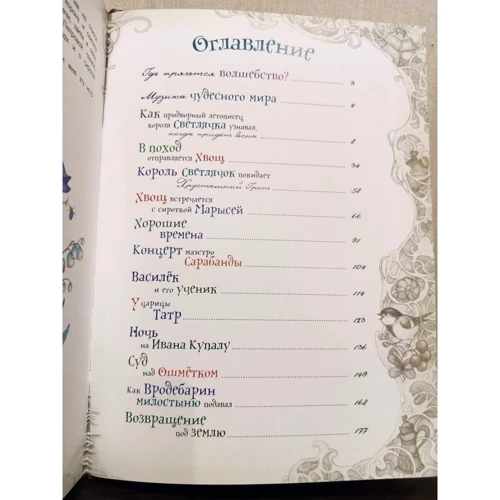 Оглавление
Где прячется волшебство? 3
Музыка чудесного мира 4
Как придворный летописец
короля Светлячка узнавал,
когда придёт весна 8
В поход
отправляется Хвощ 34
Король Светлячок покидает
Хрустальный Грот 52
Хвощ встречается
с сироткой Марысей 66
Хорошие
времена 91
Концерт маэстро
Сарабанды 104
Василёк
и его ученик 114
У царицы
Татр 123
Ночь
на Ивана Купалу 136
Суд
над Ошмётком 149
Как Вродебарин
милостыню подавал 162
Возвращение
под землю 177